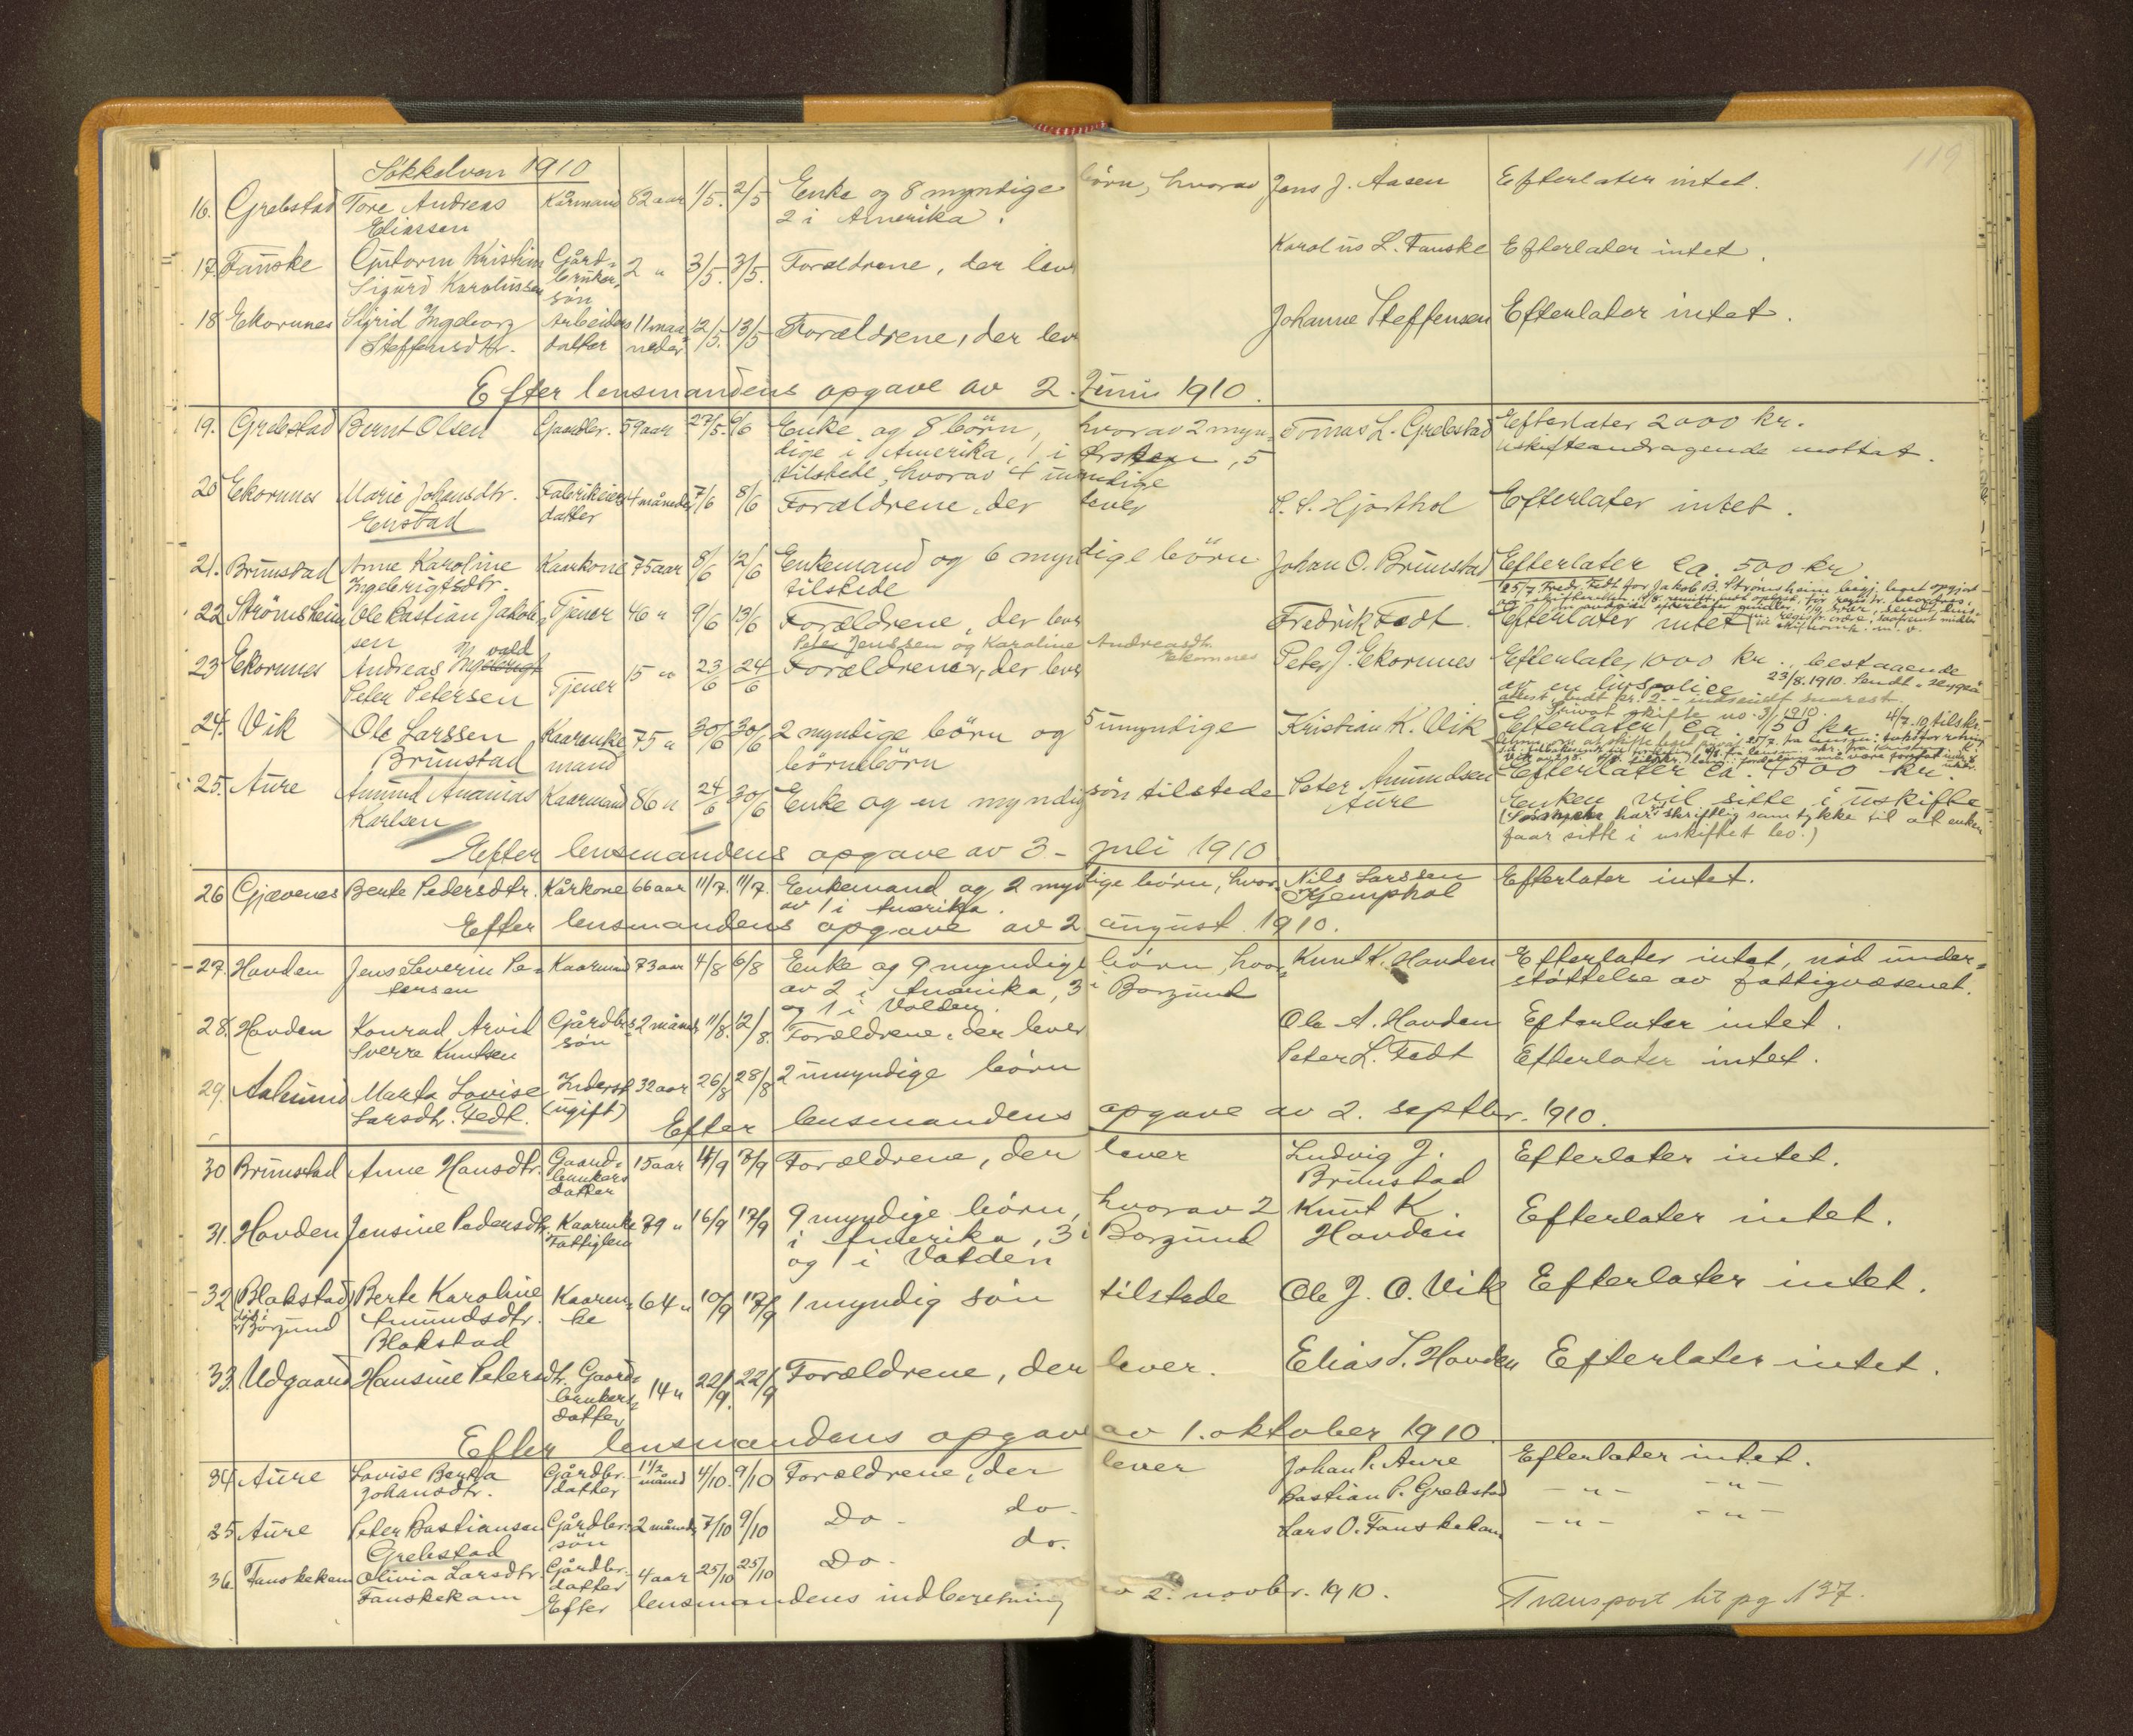 119
Søkkelven 1910
16. Grebstad Tore Andreas Kårmand 82 aar 1/5. 2/5 Enke og 8 myndige børn, hvorav Jens J. Aasen Efterlater intet.
Eliassen 2 i Amerika.
17. Fauske Guttorm Kristian Gård- 2 " 3/5. 3/5. Forældrene, der lever Karolus L. Fauske Efterlater intet.
Sigurd Karolussen bruker-
søn
18 Ekornnes Sigrid Ingeborg Arbeiders 11 maa 12/5. 13/5 Forældrene, der lever Johanne Steffensen Efterlater intet.
Steffensdtr. datter neder
Efter lensmandens opgave av 2. Juni 1910.
19. Grebstad Bernt Olsen Gaardbr. 59 aar 27/5. 6/6 Enke og 8 børn, hvorav 2 myn- Tomas L. Grebstad Efterlater 2000 kr.
dige i Amerika, 1 i Ørsken, 5 Uskifteandragende mottat.
tilstede, hvorav 4 umyndige
20 Ekornnes Marie Johansdtr. Fabrikeiers 4 måneder 7/6 8/6 Forældrene, der lever S. S. Hjorthol Efterlater intet.
Enstad datter
21. Brunstad Anne Karoline Kaarkone 75 aar 8/6 12/6 Enkemand og 6 myndige børn Johan O. Brunstad Efterlater ca. 500 kr
Ingebrigtsdtr. tilstede
22 Strømsheim Ole Bastian Jakob- Tjener 46 " 9/6 13/6 Forældrene, der lever Fredrik Fedt. Efterlater intet
sen
Peter Jenssen og Karoline Andreasdtr. Ekornnes
23 Ekornnes Andreas Ingebrigt vald Tjener 15 " 23/6 24/6 Forældrene, der lever Peter J. Ekornnes Efterlater 1000 kr., bestaaende
Peter Petersen av en livspolice 23/8.1910. Sendt
Privat skifte no. 3/1910.
24. Vik Ole Larssen Kaarenke 75 " 30/6 30/6 2 myndige børn og 5 umyndige Kristian K. Vik Efterlater ca 150 kr
Brunstad mand børnebörn
25. Aure Amund Ananias Kaarmand 86 " 24/6 30/6 Enke og en myndig søn tilstede Peter Amundsen Efterlater ca. 4500 kr.
Karlsen Aure Enken vil sitte i uskifte
har skriftlig samtykke til at enken
faar sitte i uskiftet bo.)
Efter lensmandens opgave av 3- juli 1910
26 Gjævenes Berte Pedersdtr. Kårkone 66 aar 11/7. 11/7. Enkemand og 2 myndige børn, hvor- Nils Larssen Efterlater intet.
av 1 i Amerika. Hjemphol
Efter lensmandens opgave av 2 august 1910.
27. Hovden Jens Severin Pe- Kaarmand 73 aar 4/8 6/8 Enke og 9 myndige børn, hvor- Knut K. Hovden Efterlater intet, nød under-
tersen av 2 i Amerika, 3 i Borgund støttelse av fattigvæsenet.
og 1 i Volden.
28. Hovden Konrad Arvid Gårdbrs 2 måneder 11/8. 12/8. Forældrene, der lever Ole A. Hovden Efterlater intet.
Sverre Knutsen søn
29. Aalesund Marta Lovise Inderst 32 aar 26/8 28/8 2 umyndige børn Peter L. Fedt Efterlater intet.
Larsdtr. Fedt. (ugift)
Efter lensmandens opgave av 2. septbr. 1910.
30 Brunstad Anne Hansdtr. Gaard- 15 aar 4/9 7/9 Forældrene, der lever Ludvig J. Efterlater intet.
brukers Brunstad
datter
31. Hovden Jensine Pedersdtr. Kaarenke 79 " 16/9 17/9 9 myndige børn, hvorav 2 Knut K. Efterlater intet.
Fattiglem i Amerika, 3 i Borgund Hovden
og 1 i Volden
32 Blakstad Berte Karoline Kaaren- 64 " 10/9 17/9 1 myndig søn tilstede Ole J. O. Vik Efterlater intet.
død i Borgund Amundsdtr. ke
Blakstad
33. Udgaard Hansine Petersdtr. Gaard- 14 " 22/9. 22/9 Forældrene, der lever. Elias S. Hovden Efterlater intet.
brukers
datter
Efter lensmandens opgave av 1. oktober 1910.
34 Aure Lovise Berta Gårdbr. 1 1/2 månd 4/10. 9/10 Forældrene, der lever Johan P. Aure Efterlater intet.
Johansdtr. datter
35 Aure Peter Bastiansen Gårdbr. 2 måneder 7/10 9/10 Do - do - Bastian P. Grebstad - " - - " -
Grebstad søn
36. Fauskekam Olivia Larsdtr. Gårdbr. 4 aar 25/10 25/10 Do - do. Lars O. Fauskekam - " - - " -
Fauskekam datter
Efter lensmandens indberetning av 2. novbr. 1910.
Transport til pg 137.